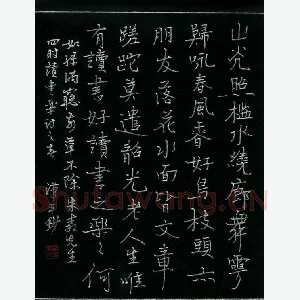 山光照檻水繞廊舞雩
歸詠春風香好鳥枝頭亦
朋友落花水面皆文章
蹉跎莫遣韶光老人生唯
有讀書好讀書之樂々何
如綠滿窗前草不除朱熹先生
四時讀書樂詩之春